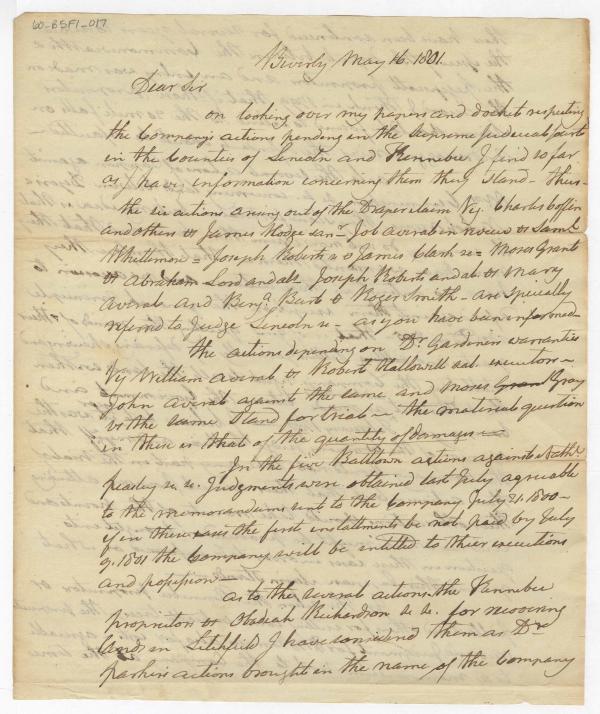 60-BSF1-017
Beverly May 16. 1801.
Dear Sir
on looking over my papers and docket respecting
the Company's actions pending in the Supreme Judicial Court
in the Counties of Lincoln and Kennebec I find so far
as I have information concerning them they stand - thus -
the six actions arising out of the Draper claim Viz. Charles
and others vs James Hodge Senr. Job averab in review vs Saml
Whittemore = Joseph Roberts vs James Clark = Moses Grant
vs Abraham Lord and als Joseph Roberts and al vs Mary
averab and Benja. Burb vs Roger Smith - are specially
referred to Judge Lincoln &c - as you have been informed -
the actions depending on Dr. Gardiners warranties
Viz William averab vs Robert Hallowell &al. executors -
John averab against the same and Moses Gray
vs the same stand for trial - the material question
in these is that of the quantity of damages -
In the five Balltown actions against Nathl.
peasley &c. &c. Judgments were obtained last July agreeable
to the memorandums sent to the Company July 21. 1800 -
if in these cases the first installments be not paid by July
9. 1801 the Company will be intitled to their executions
and possession -
as to the several actions the Kennebec
proprietors vs Obediah Richardson &c. &c. for recovering
lands in Litchfield I have considered them as Dr.
parkers actions brought in the name of the Company